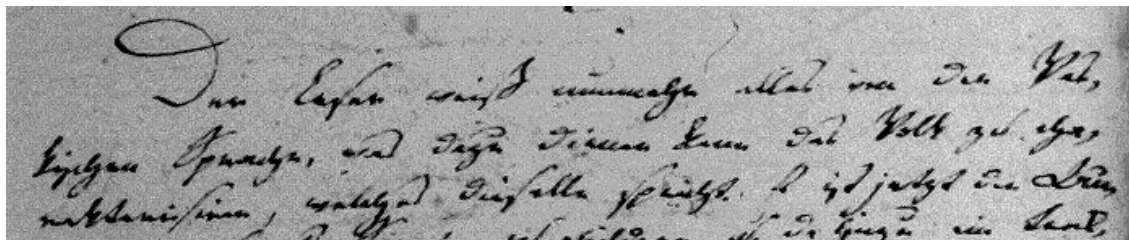 Der Leser weiß nunmehr alles von der Vas-
kischen Sprache, was dazu dienen kann das Volk zu cha-
rakterisiren, welches dieselbe spricht. Es ist jetzt